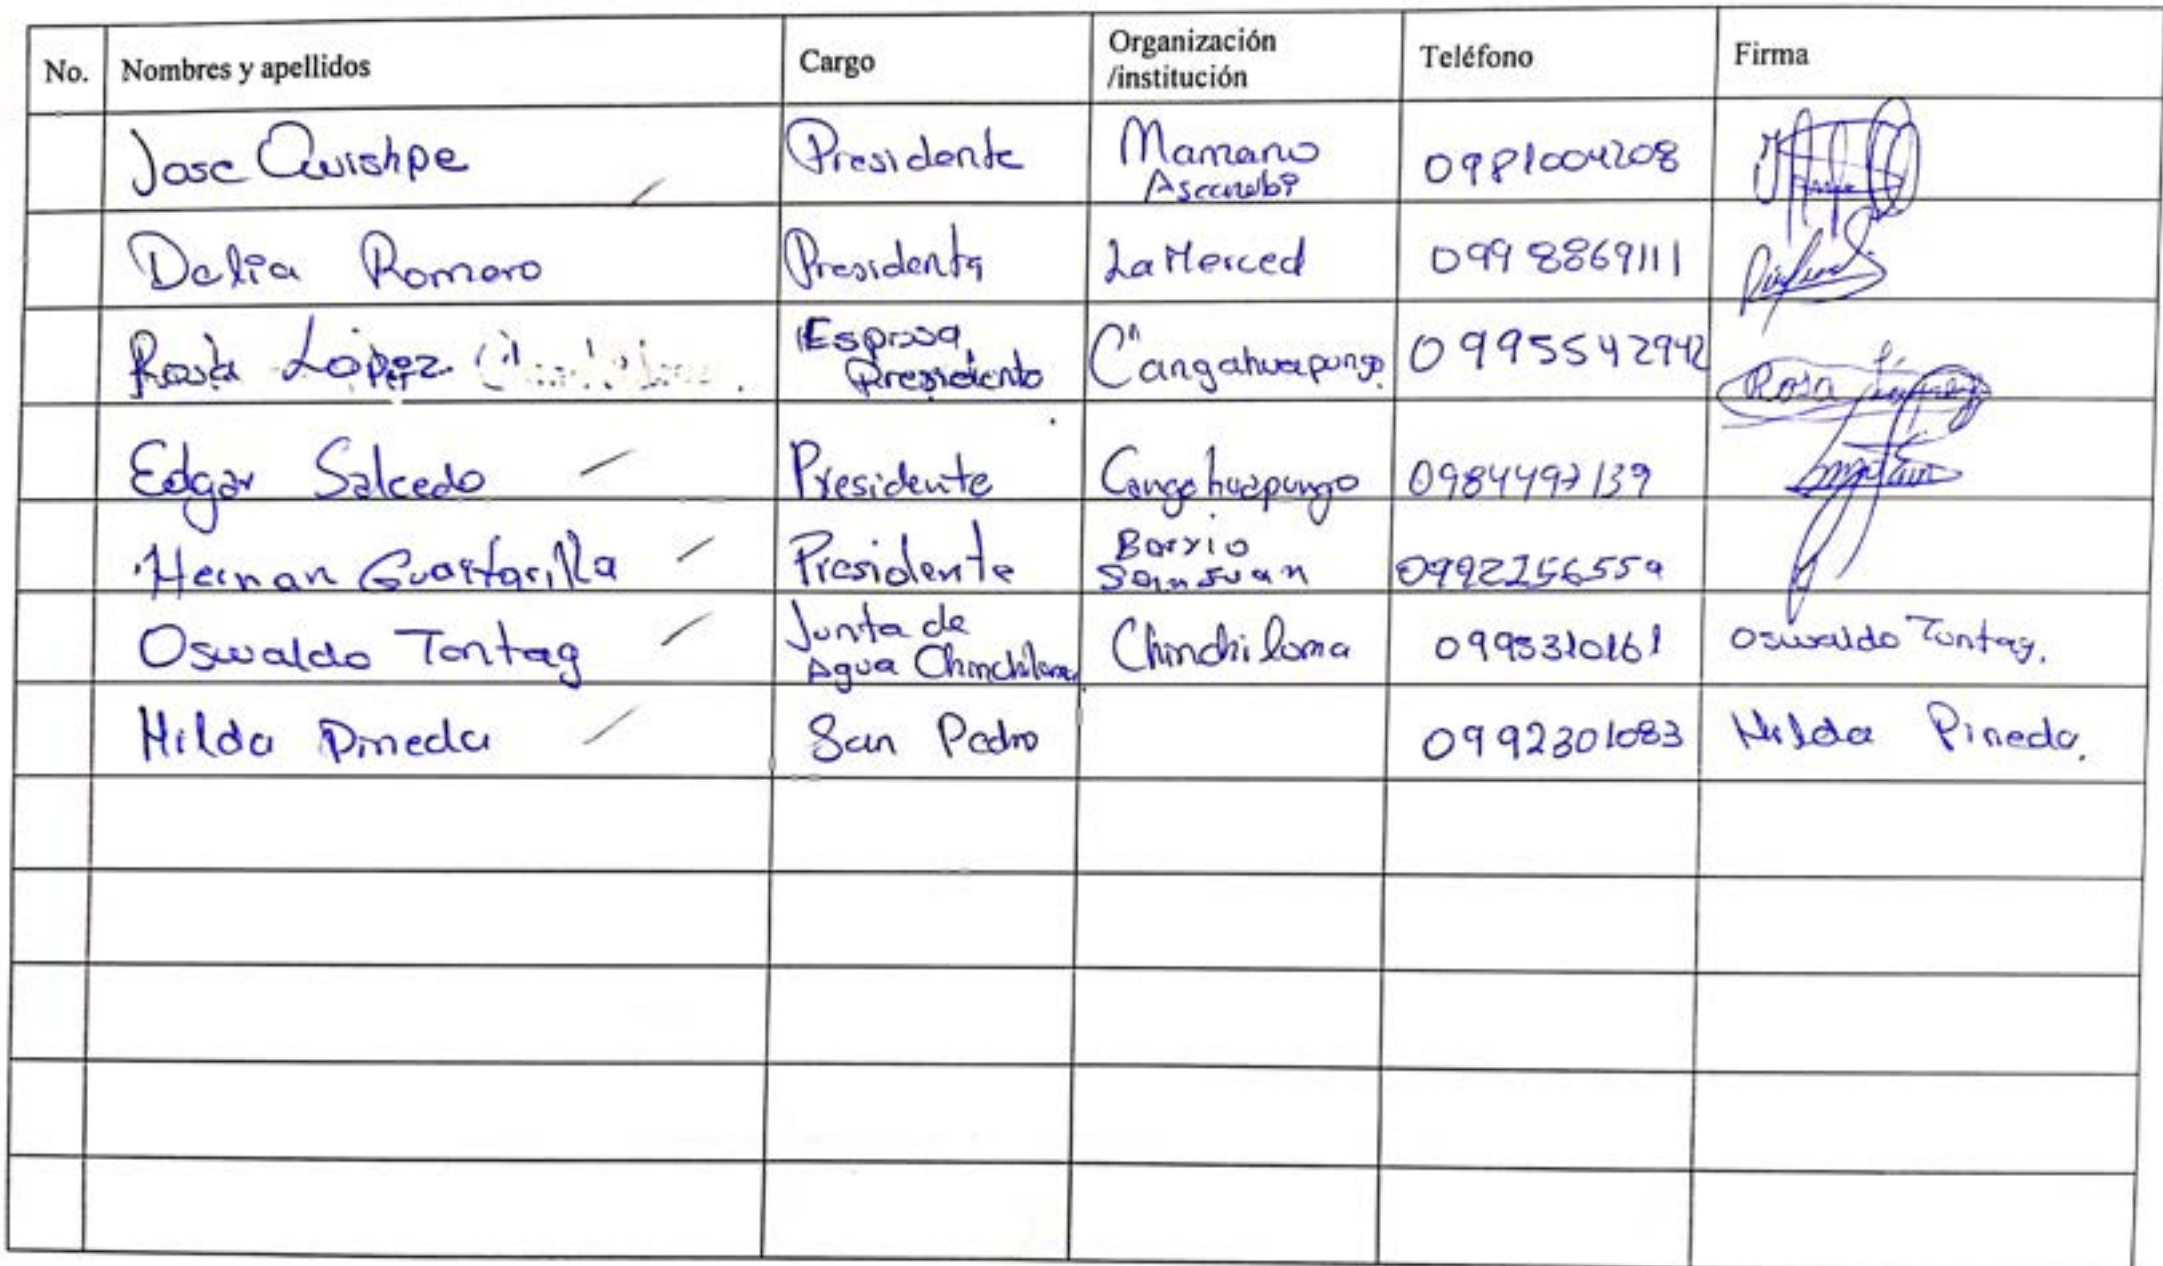 No. Nombres y apellidos Cargo Organización /institución Teléfono Firma
Jose Quishpe Presidente Mamano Ascazubi 0981004208
Delia Romero Presidenta La Merced 0998869111
Rosa López Esposa Presidente Cangahuapungo 0995542942 Rosa
Edgar Salcedo Presidente Cangahuapungo 0984497139
Hernan Guartarilla Presidente Barrio San Juan 0992256559
Oswaldo Tontag Junta de Agua Chinchiloma Chinchiloma 0993310161 Oswaldo Tontag.
Hilda Pineda San Pedro 0992301083 Hilda Pineda.